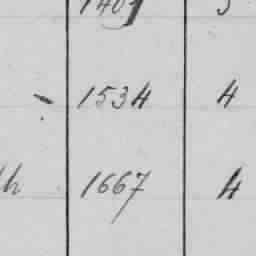 1534 4
th 1667 4